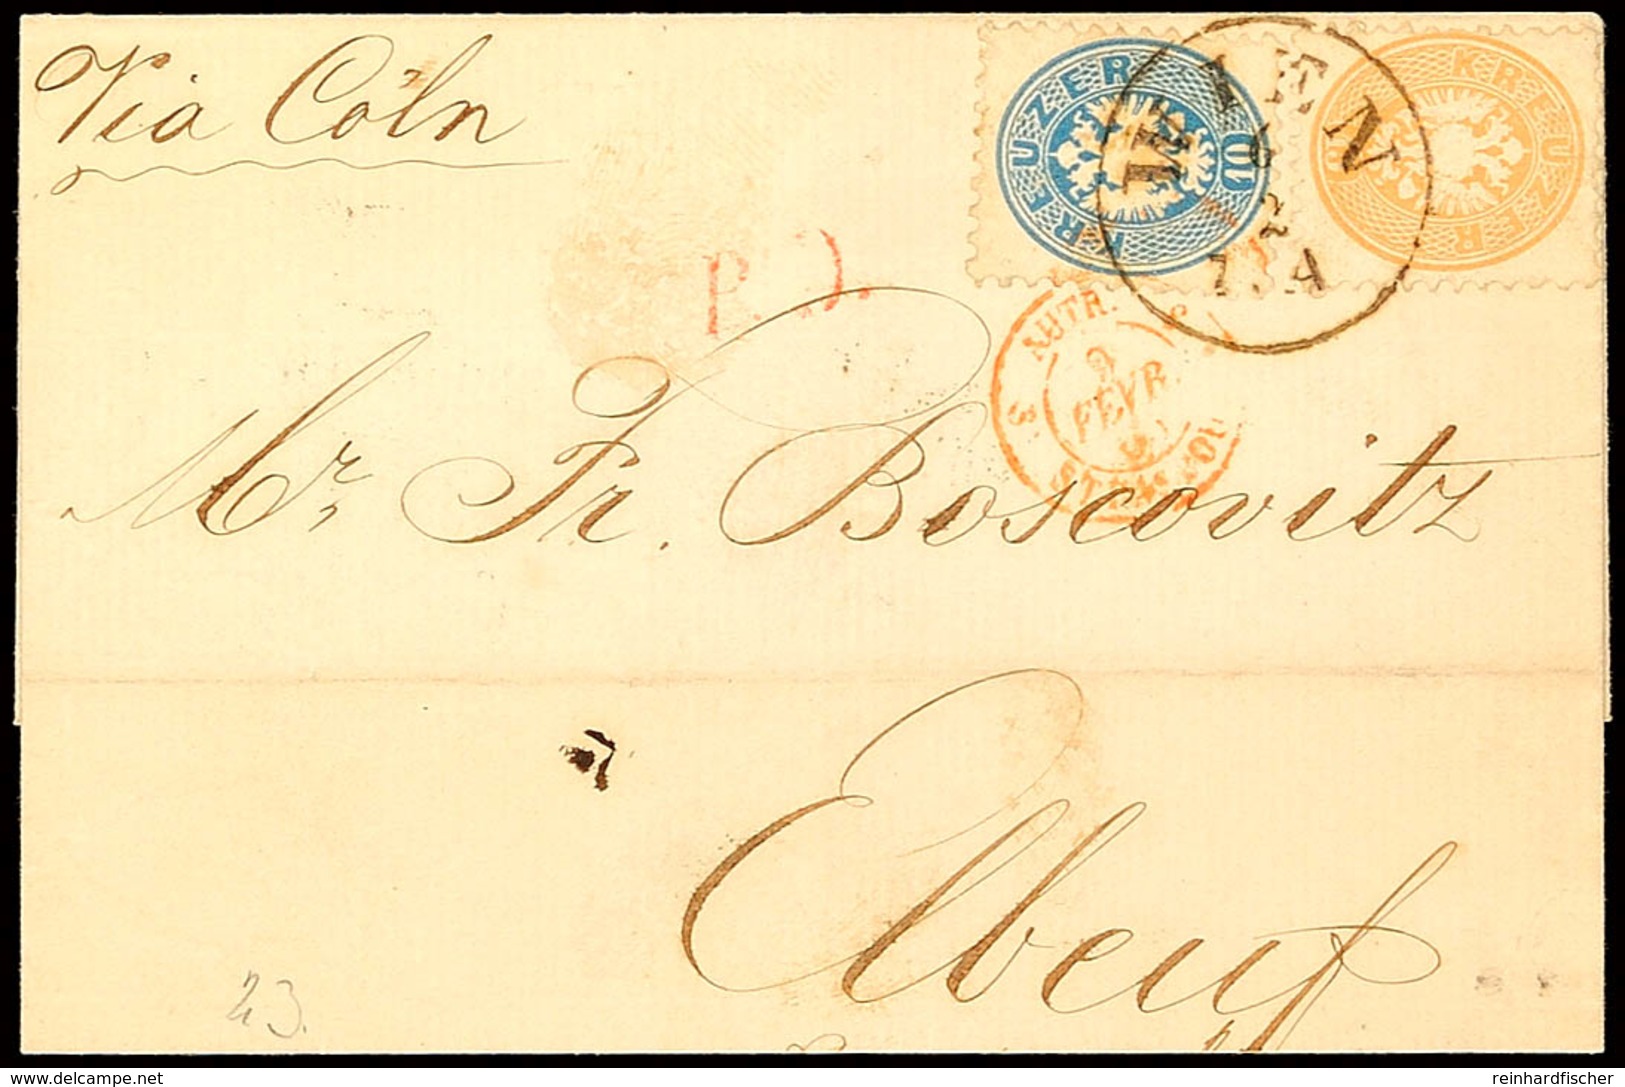 Via Cöln
KREUZER 10
KREUZER
WIEN
6
2
7.A
P.D.
AUTR.
9
FEVR.
STRASBOU
Mr. Fr. Boscovitz
Elbeuf
23.
delcampe.net
reinhardfischer